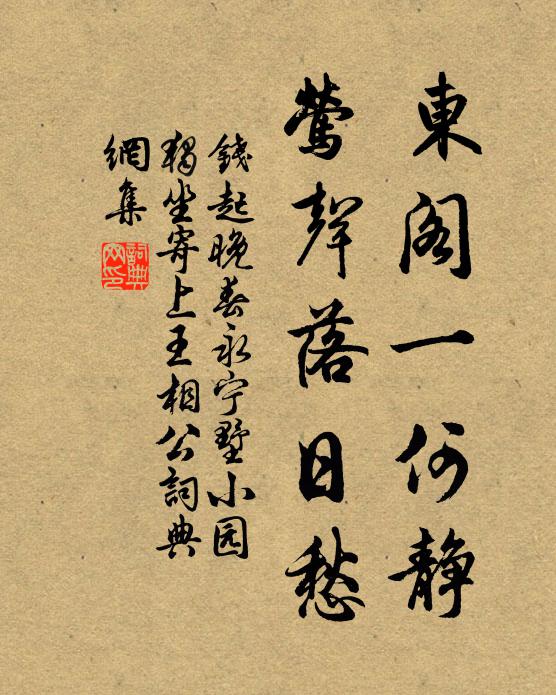 東閣一何静
鶯聲落日愁
錢起晚春永宁墅小园
獨坐寄上王相公詞典
網集
詞典網印